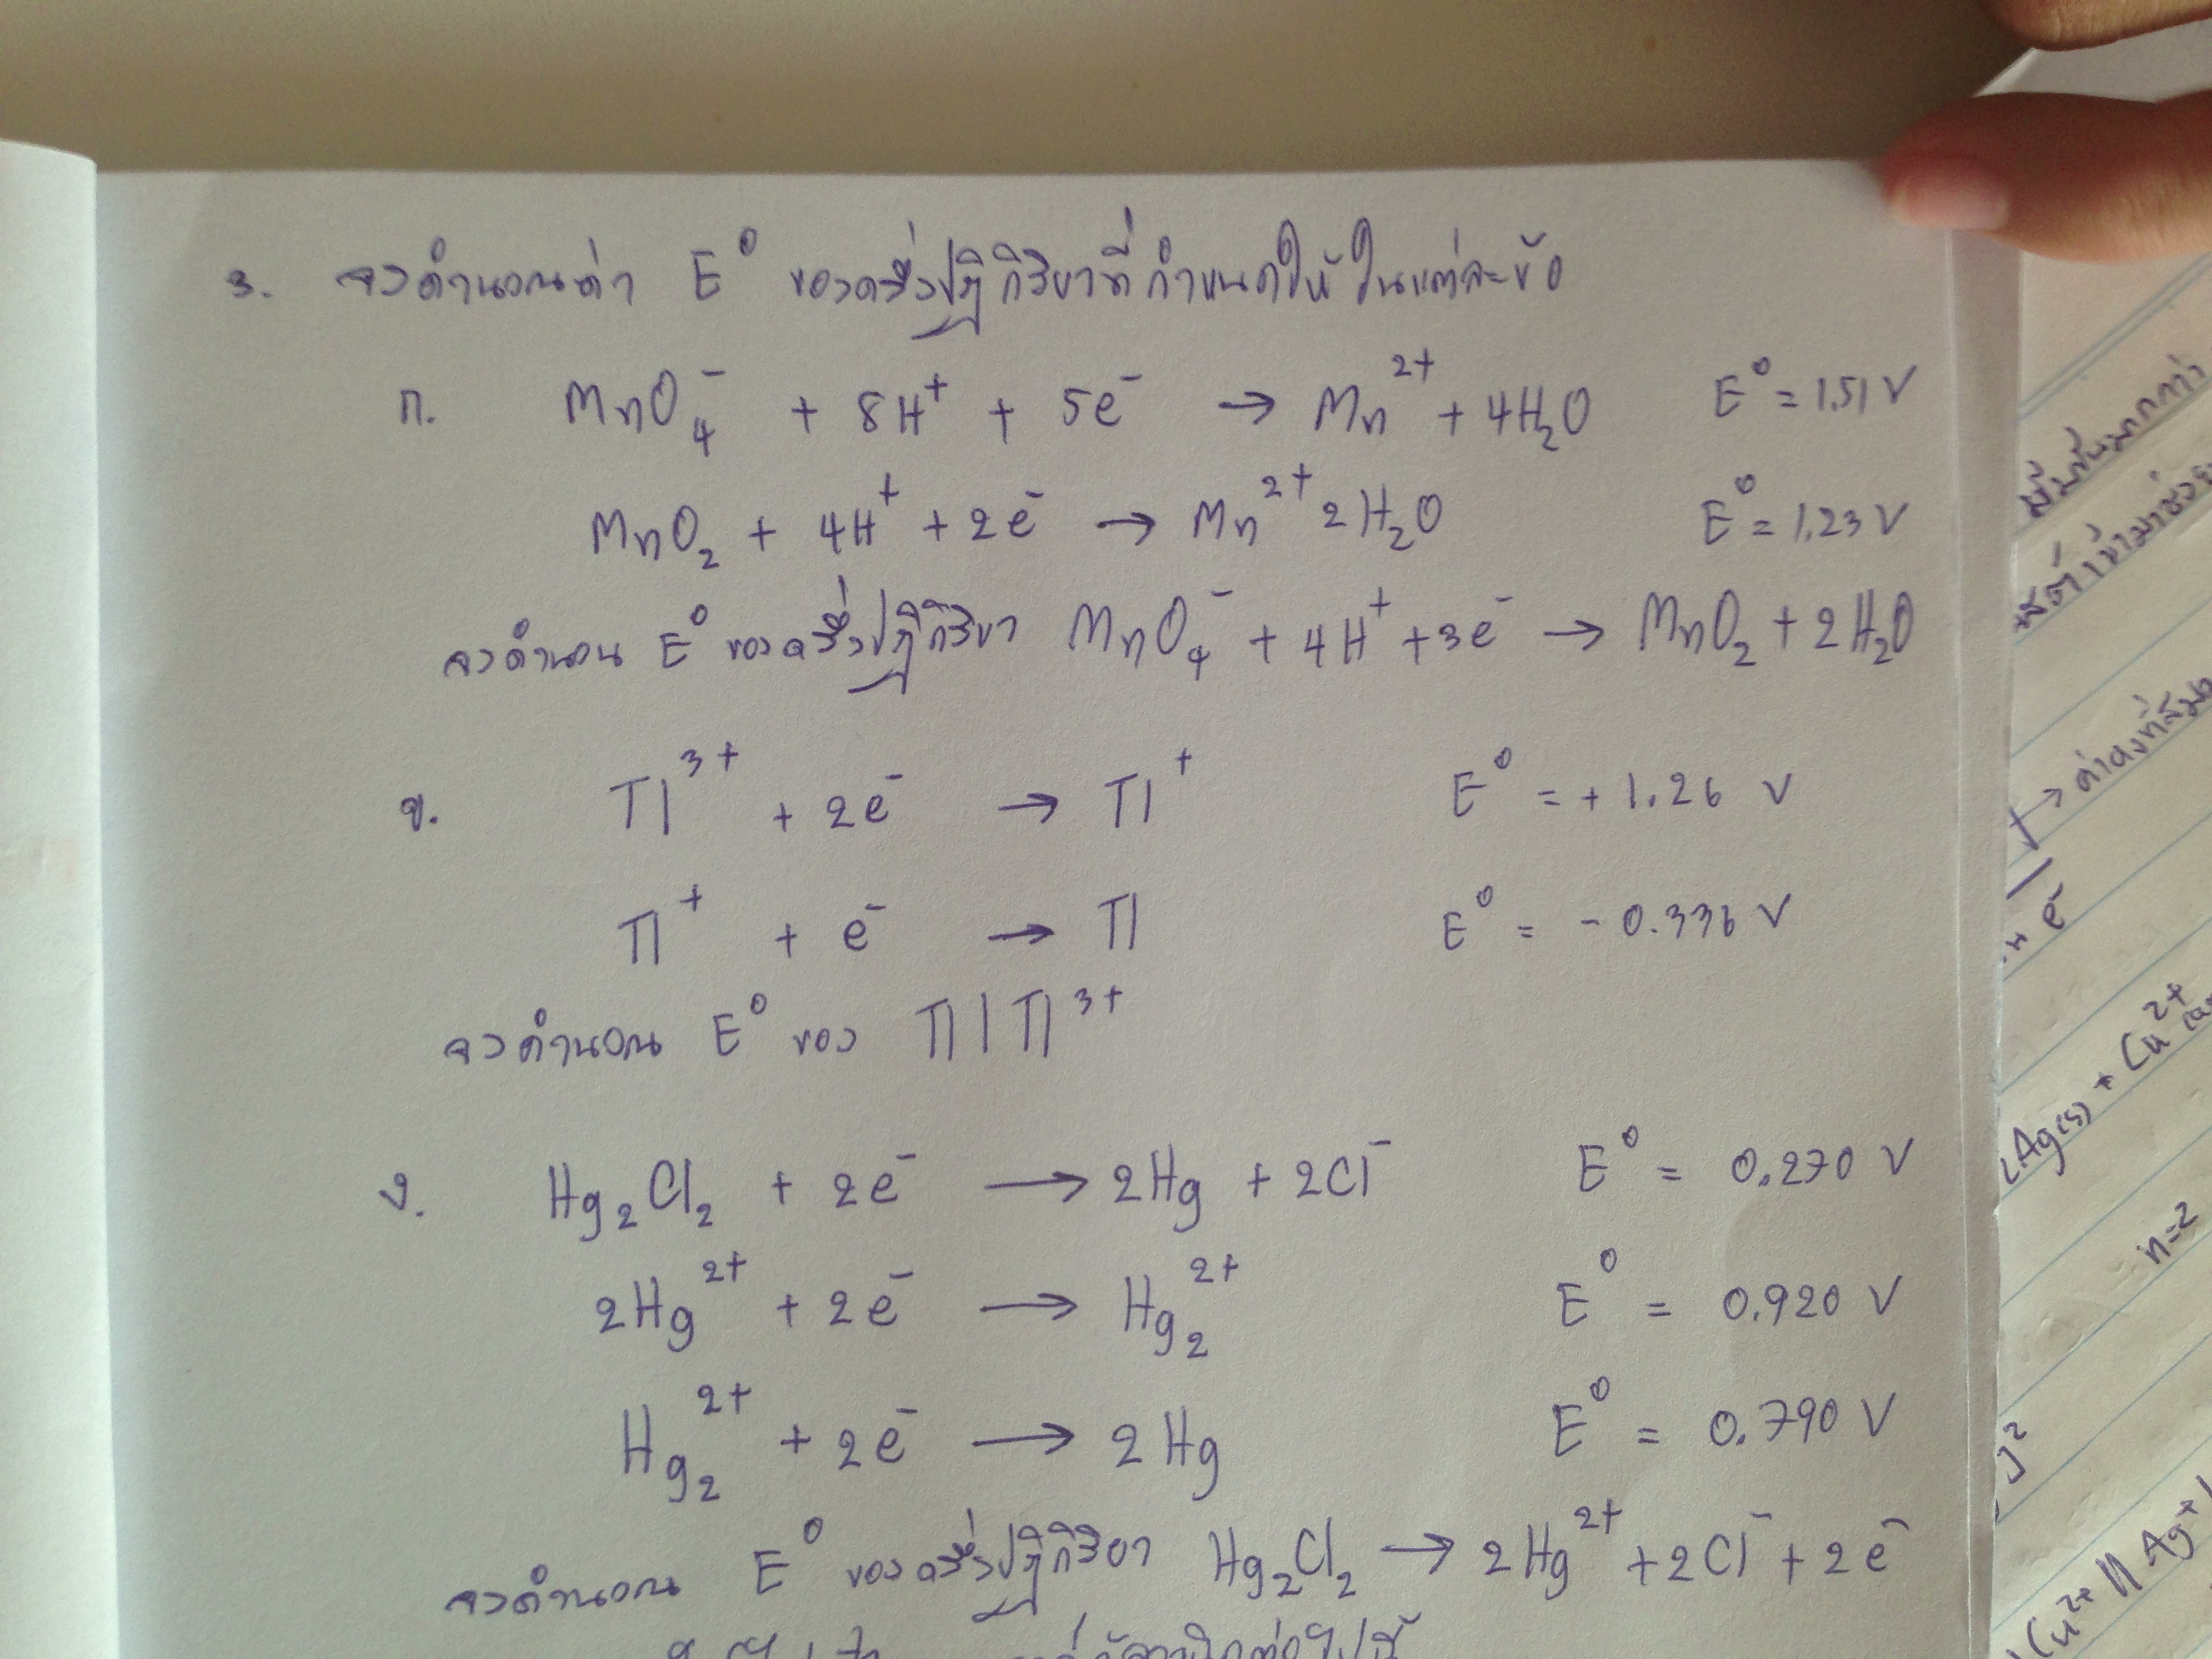 3. จงคำนวณค่า E⁰ ของครึ่งปฏิกิริยาที่กำหนดให้ในแต่ละข้อ
ก. MnO₄⁻ + 8H⁺ + 5e⁻ → Mn²⁺ + 4H₂O E⁰ = 1.51 V
MnO₂ + 4H⁺ + 2e⁻ → Mn²⁺ 2H₂O E⁰ = 1.23 V
จงคำนวน E⁰ ของครึ่งปฏิกิริยา MnO₄⁻ + 4H⁺ + 3e⁻ → MnO₂ + 2H₂O
ข. Tl³⁺ + 2e⁻ → Tl⁺ E⁰ = + 1.26 V
Tl⁺ + e⁻ → Tl E⁰ = - 0.336 V
จงคำนวณ E⁰ ของ Tl | Tl³⁺
ง. Hg₂Cl₂ + 2e⁻ → 2Hg + 2Cl⁻ E⁰ = 0.270 V
2Hg²⁺ + 2e⁻ → Hg₂²⁺ E⁰ = 0.920 V
Hg₂²⁺ + 2e⁻ → 2Hg E⁰ = 0.790 V
จงคำนวณ E⁰ ของครึ่งปฏิกิริยา Hg₂Cl₂ → 2Hg²⁺ + 2Cl⁻ + 2e⁻
ต่อไปนี้
e⁻
Ag(s) + Cu²⁺
n=2
Cu²⁺ // Ag⁺